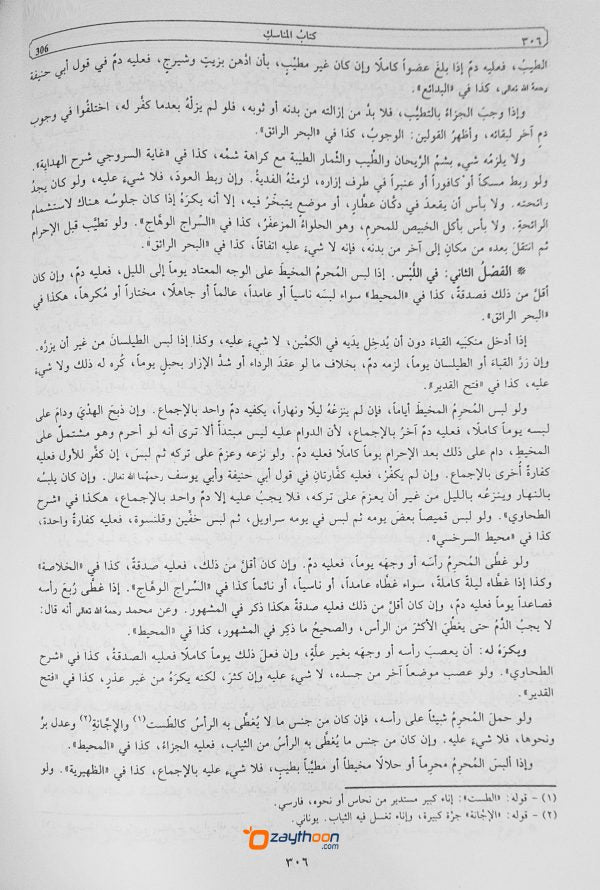 ٣٠٦ كتابُ المَناسكِ 306
الطيبُ، فعليه دمٌ إذا بلغَ عضواً كاملًا وإن كان غير مطيّبٍ، بأن ادّهن بزيتٍ وشيرجٍ، فعليه دمٌ في قول أبي حنيفة
رحمهُ الله تعالى، كذا في «البدائع».
وإذا وجبَ الجزاءُ بالتطيُّب، فلا بدَّ من إزالته من بدنه أو ثوبه، فلو لم يزلْهُ بعدما كفّر له، اختلفُوا في وجوب
دمٍ آخر لبقائه، وأظهرُ القولين: الوجوبُ، كذا في «البحر الرائق».
ولا يلزمُه شيءٌ بشمِّ الرَّيحان والطِّيب والثِّمار الطيبة مع كراهة شمِّه، كذا في «غاية السروجي شرح الهداية».
ولو ربط مسكاً أو كافوراً أو عنبراً في طرف إزاره، لزمتْهُ الفديةُ. وإن ربط العودَ، فلا شيءَ عليه، ولو كان يجدُ
رائحته. ولا بأس أن يقعدَ في دكّان عطّار، أو موضعٍ يتبخَّر فيه، إلا أنه يكرهُ إذا كان جلوسُه هناك لاستشمام
الرائحةِ. ولا بأس بأكل الخبيص للمحرمِ، وهو الحلواءُ المزعفَرُ، كذا في «السِّراج الوهَّاج». ولو تطيَّب قبل الإحرام
ثم انتقلَ بعده من مكانٍ إلى آخر من بدنه، فإنه لا شيءَ عليه اتفاقاً، كذا في «البحر الرائق».
* الفصْلُ الثاني: في اللُّبْس. إذا لبس المُحرمُ المخيطَ على الوجه المعتاد يوماً إلى الليل، فعليه دمٌ، وإن كان
أقلَّ من ذلك فصدقةٌ، كذا في «المحيط» سواء لبسَه ناسياً أو عامداً، عالماً أو جاهلًا، مختاراً أو مُكرهاً، هكذا في
«البحر الرائق».
إذا أدخل منكبَيه القباءَ دون أن يُدخِل يدَيه في الكمَّين، لا شيءَ عليه، وكذا إذا لبس الطيلسانَ من غير أن يزرَّه.
وإن زرَّ القباءَ أو الطيلسان يوماً، لزمه دمٌ، بخلاف ما لو عقدَ الرداء أو شدَّ الإزار بحبلٍ يوماً، كُره له ذلك ولا شيءَ
عليه، كذا في «فتح القدير».
ولو لبس المُحرِمُ المخيطَ أياماً، فإن لم ينزعْهُ ليلًا ونهاراً، يكفيه دمٌ واحد بالإجماع. وإن ذبحَ الهدْيَ ودامَ على
لبسه يوماً كاملًا، فعليه دمٌ آخرُ بالإجماع، لأن الدوام عليه لبس مبتدأٌ ألا ترى أنه لو أحرم وهو مشتملٌ على
المخيطِ، دام على ذلك بعد الإحرام يوماً كاملًا فعليه دمٌ. ولو نزعه وعزم على تركه ثم لبسَ، إن كفَّر للأول فعليه
كفارةٌ أُخرى بالإجماع. وإن لم يكفِّر، فعليه كفّارتان في قول أبي حنيفة وأبي يوسف رحمهُما الله تعالى. وإن كان يلبسُه
بالنهار وينزعُه بالليل من غير أن يعزمَ على تركه، فلا يجبُ عليه إلا دمٌ واحد بالإجماع، هكذا في «شرح
الطحاوي». ولو لبس قميصاً بعضَ يومه ثم لبس في يومه سراويل، ثم لبس خفَّين وقلنسوة، فعليه كفارةٌ واحدة،
كذا في «محيط السرخسي».
ولو غطَّى المُحرمُ رأسَه أو وجهَه يوماً، فعليه دمٌ. وإن كان أقلَّ من ذلك، فعليه صدقةٌ، كذا في «الخلاصة»
وكذا إذا غطّاه ليلةً كاملةً، سواء غطّاه عامداً، أو ناسياً، أو نائماً كذا في «السِّراج الوهّاج». إذا غطَّى رُبعَ رأسه
فصاعداً يوماً فعليه دمٌ، وإن كان أقلَّ من ذلك فعليه صدقةٌ هكذا ذكر في المشهور. وعن محمد رحمهُ الله تعالى أنه قال:
لا يجبُ الدَّمُ حتى يغطِّيَ الأكثرَ من الرأس، والصحيحُ ما ذكر في المشهور، كذا في «المحيط».
ويكرهُ له: أن يعصبَ رأسه أو وجهَه بغير علَّةٍ، وإن فعلَ ذلك يوماً كاملًا فعليه الصدقةُ، كذا في «شرح
الطحاوي». ولو عصب موضعاً آخر من جسده، لا شيءَ عليه وإن كثرَ، لكنه يكرهُ من غير عذرٍ، كذا في «فتح
القدير».
ولو حملَ المُحرمُ شيئاً على رأسه، فإن كان من جنس ما لا يُغطَّى به الرأسُ كالطست(١) والإجّانةِ(٢) وعدل بُرٍّ
ونحوها، فلا شيءَ عليه. وإن كان من جنس ما يُغطَّى به الرأسُ من الثياب، فعليه الجزاءُ، كذا في «المحيط».
وإذا ألبسَ المُحرمُ محرماً أو حلالًا مخيطاً أو مطيَّباً بطيبٍ، فلا شيءَ عليه بالإجماع، كذا في «الظهيرية». ولو
(١) - قوله: «الطست»: إناء كبير مستدير من نحاس أو نحوه، فارسي.
(٢) - قوله: «الإجّانة» جرّة كبيرة، وإناء تغسل فيه الثياب. يوناني.
Ozaythoon
.com
٣٠٦